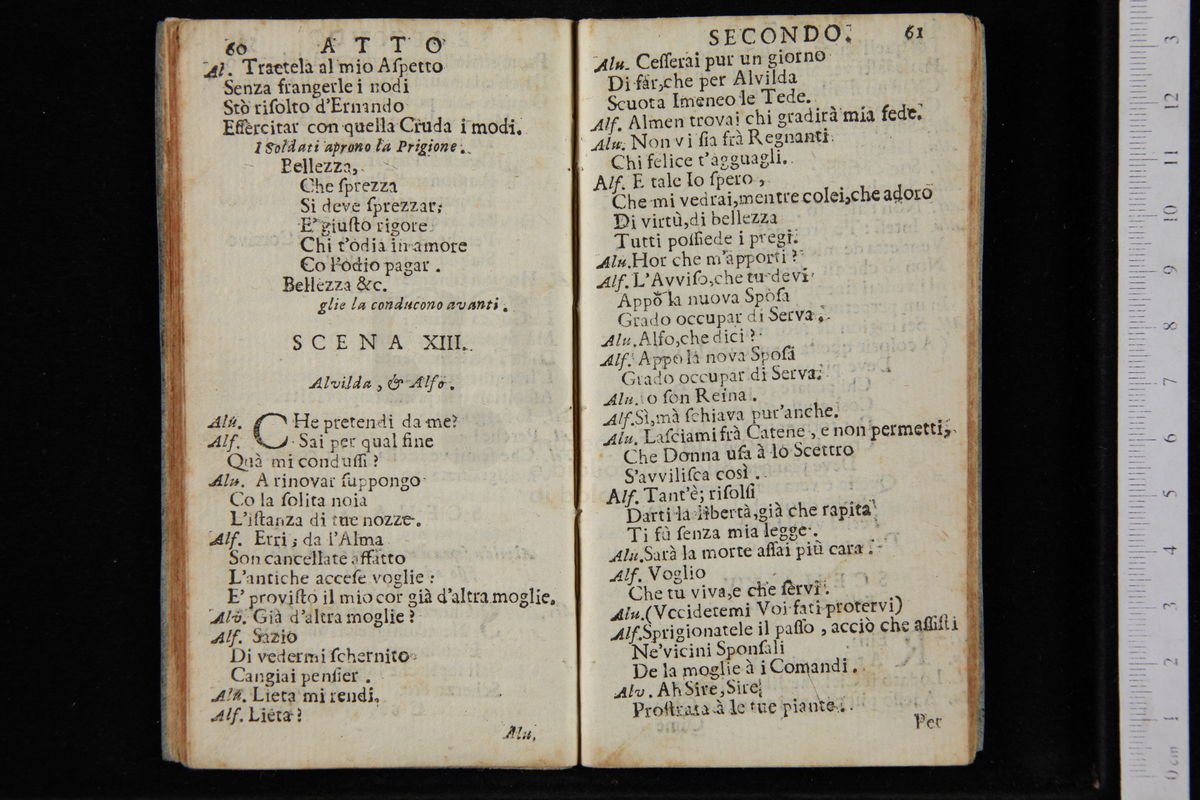 60 ATTO
Al. Traetela al mio Aſpetto
Senza frangerle i nodi
Stò riſolto d'Ernando
Eſſercitar con quella Cruda i modi.
I Soldati aprono la Prigione.
Bellezza,
Che ſprezza
Si deve ſprezzar;
E' giuſto rigore
Chi t'odia in amore
Co l'odio pagar.
Bellezza &c.
glie la conducono avanti.
SCENA XIII.
Alvilda, & Alfo.
Alu. CHe pretendi da me?
Alf. Sai per qual fine
Quà mi conduſſi?
Alu. A rinovar ſuppongo
Co la ſolita noia
L'iſtanza di tue nozze.
Alf. Erri; da l'Alma
Son cancellate affatto
L'antiche acceſe voglie:
E' proviſto il mio cor già d'altra moglie.
Alv. Già d'altra moglie?
Alf. Sazio
Di vedermi ſchernito
Cangiai penſier.
Alu. Lieta mi rendi.
Alf. Lieta?
Alu.
SECONDO. 61
Alu. Ceſſerai pur un giorno
Di far, che per Alvilda
Scuota Imeneo le Tede.
Alf. Almen trovai chi gradirà mia fede.
Alu. Non vi ſia frà Regnanti
Chi felice t'agguagli.
Alf. E tale Io ſpero,
Che mi vedrai, mentre colei, che adoro
Di virtù, di bellezza
Tutti poſſiede i pregi.
Alu. Hor che m'apporti?
Alf. L'Avviſo, che tu devi
Appò la nuova Spoſa
Grado occupar di Serva.
Alu. Alfo, che dici?
Alf. Appo la nova Spoſa
Grado occupar di Serva.
Alu. Io ſon Reina.
Alf. Sì, mà ſchiava pur'anche.
Alu. Laſciami frà Catene, e non permetti,
Che Donna uſa à lo Scettro
S'avviliſca così.
Alf. Tant'è; riſolſi
Darti la libertà, già che rapita
Ti fù ſenza mia legge.
Alu. Sarà la morte aſſai più cara.
Alf. Voglio
Che tu viva, e che ſervi.
Alu. (Vccidetemi Voi fati protervi)
Alf. Sprigionatele il paſſo, acciò che aſſiſti
Ne'vicini Sponſali
De la moglie à i Comandi.
Alv. Ah Sire, Sire,
Proſtrata à le tue piante.
Per